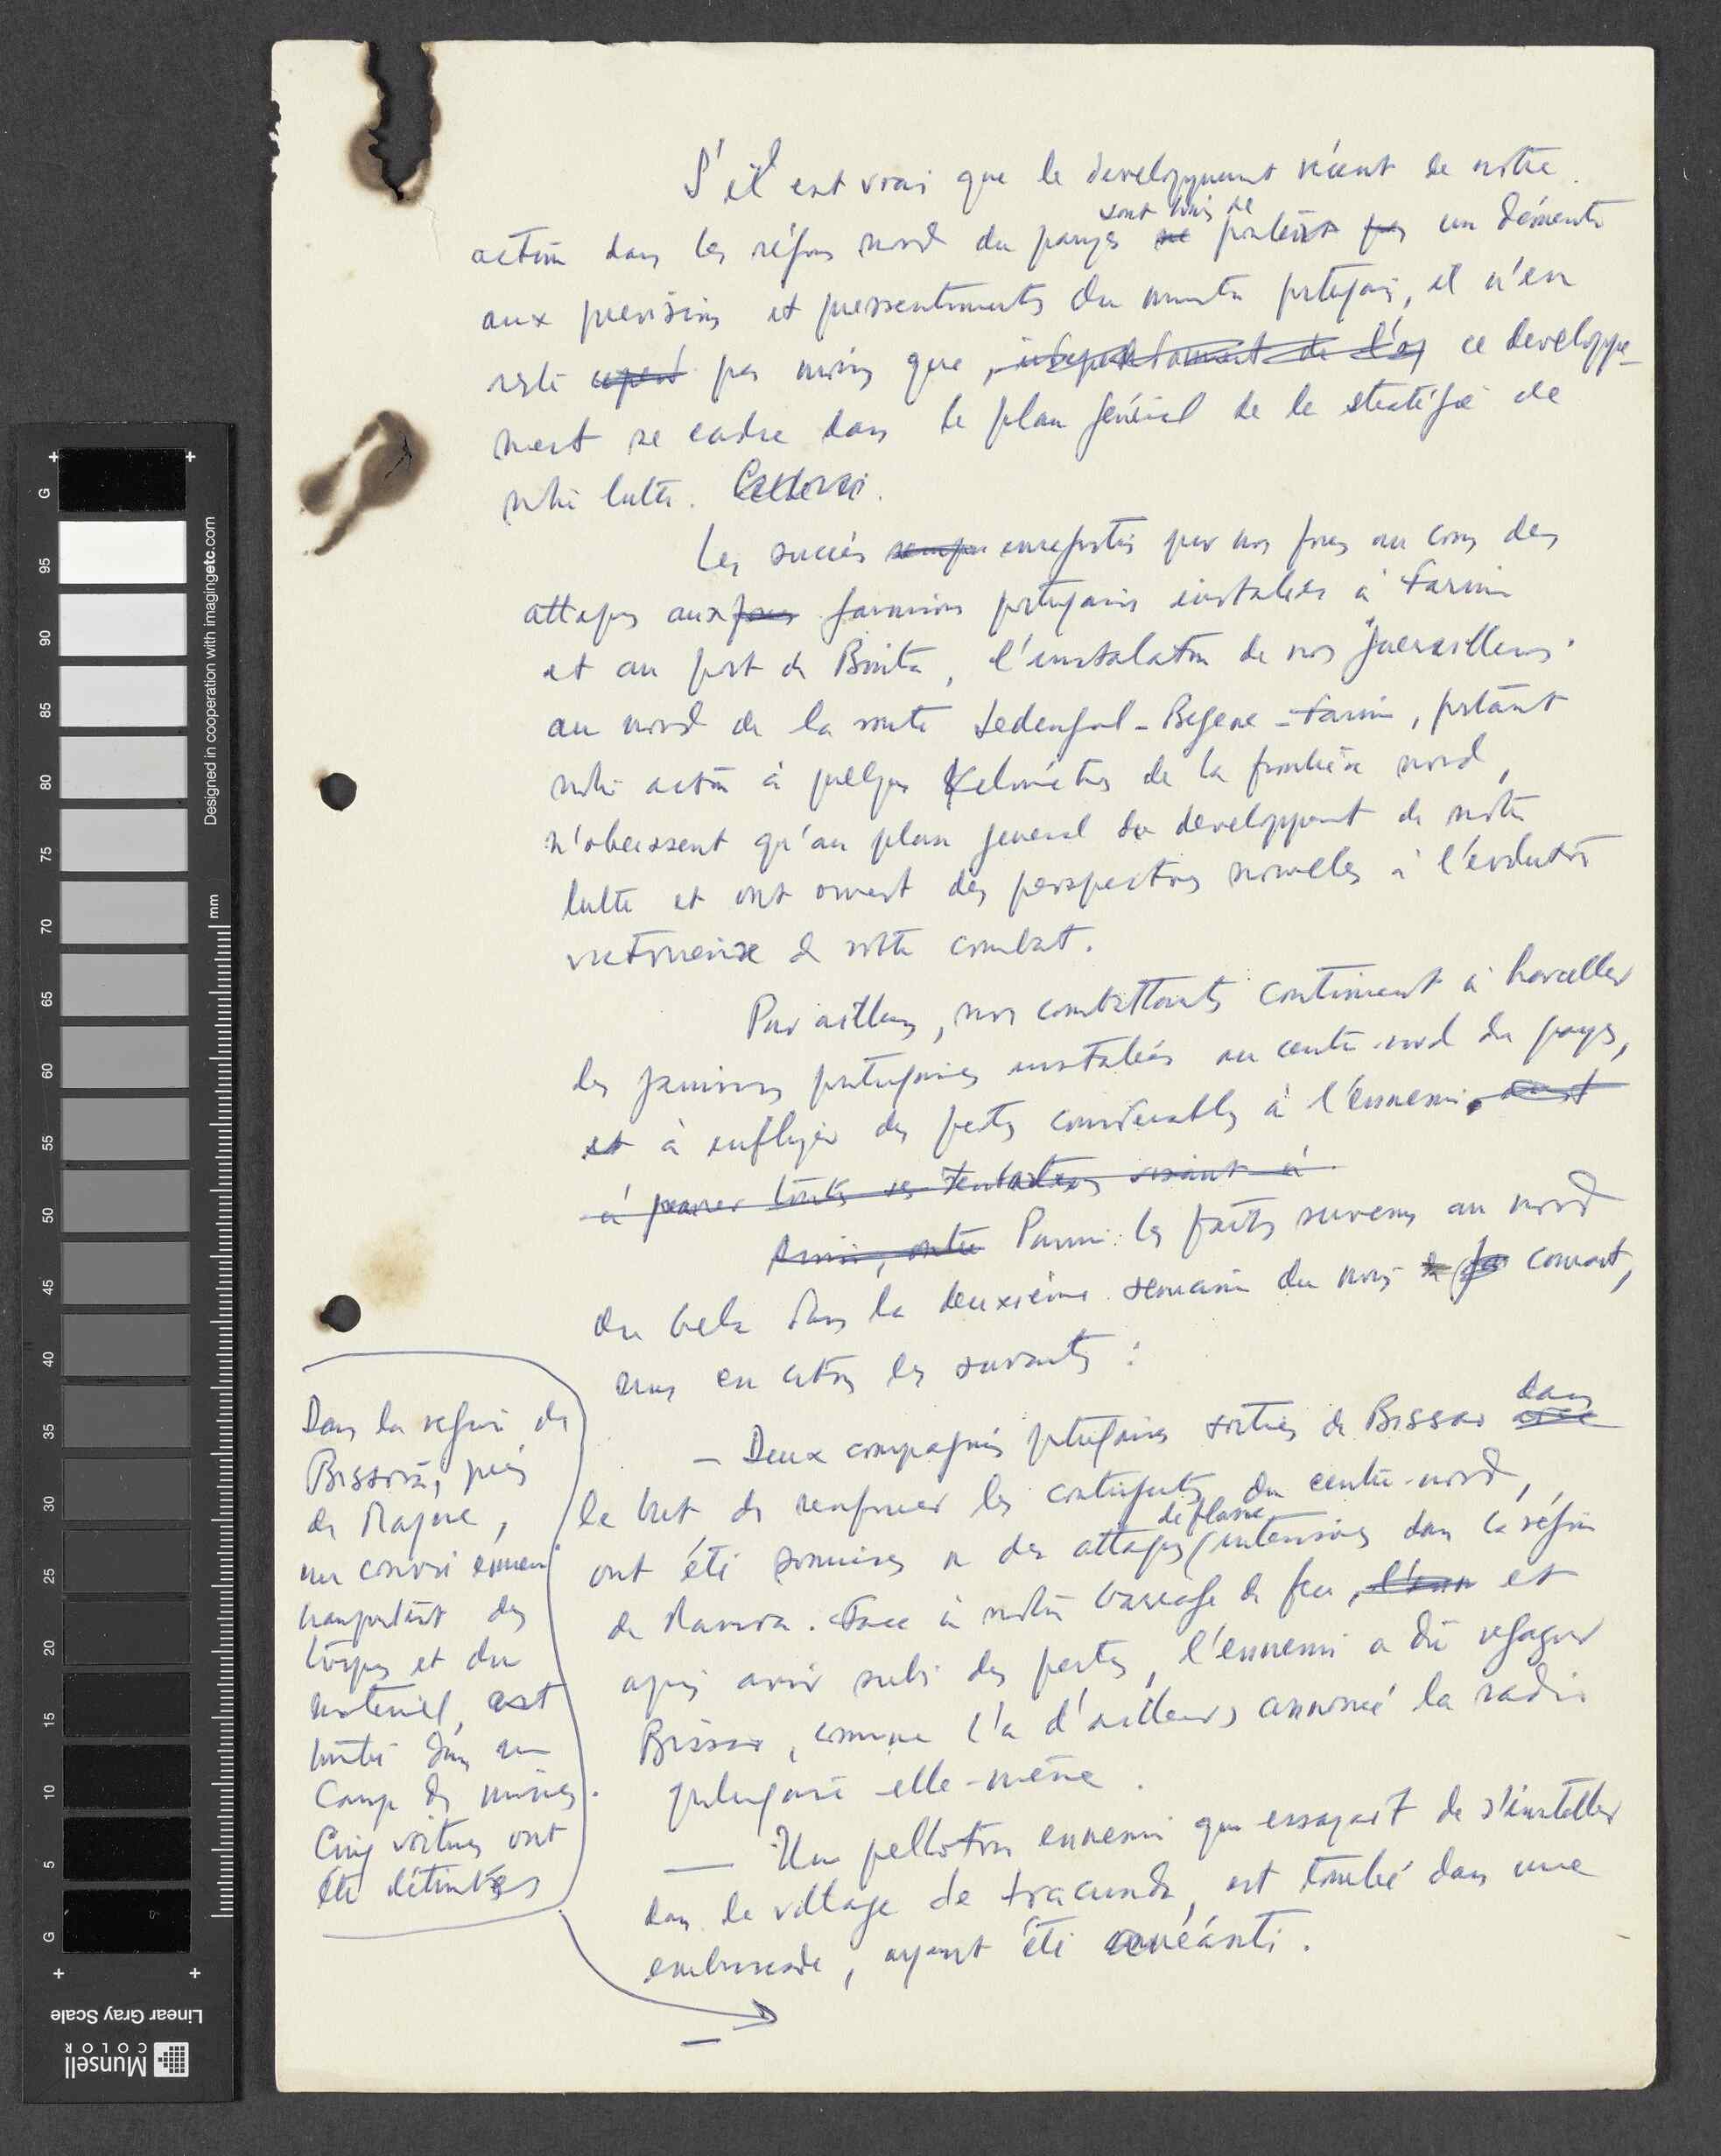 S'il est vrai que le developpement récent de notre
action dans les régions nord du pays sont loin de porter un démenti
aux previsions et pressentiments du ministre portugais, il n'en
reste pas moins que ce developpe-
ment se cadre dans le plan général de la stratégie de
notre lutte.
Les succès enregistrés par nos forces au cours des
attaques aux garnisons portugaises installées à Farim
et au port de Binta, l'installation de nos guerrilleros
au nord de la route - Begene - Farim, portant
notre action à quelques kilomètres de la frontière nord,
n'obeissent qu'au plan general du developpement de notre
lutte et ont ouvert des perspectives nouvelles à l'evolution
victorieuse de notre combat.
Par ailleurs, nos combattants continuent à harceller
les garnisons portugaises installées au centre-nord du pays,
et à infliger des pertes considerables à l'ennemi,
à parer toutes ses tentatives visant à
Parmi les faits survenus au nord
du Geba dans la deuxième semaine du mois courant,
nous en citons les suivants :
— Deux compagnies portugaises sorties de Bissao dans
le but de renforcer les contingents du centre-nord,
ont été soumises a des attaques de flanc intensives dans la région
de Mansoa. Face à notre barrage de feu, et
après avoir subi des pertes, l'ennemi a dû regagner
Bissao, comme l'a d'ailleurs annoncé la radio
portugaise elle-même.
— Un pelloton ennemi que essayait de s'installer
dans le village de Fracunda, est tombé dans une
embuscade, ayant été anéanti.
Dans la region de
Bissorã, près
de Maque,
un convoi ennemi
transportant des
troupes et du
materiel, est
tombé dans un
camp de mines.
Cinq voitures ont
été détruites